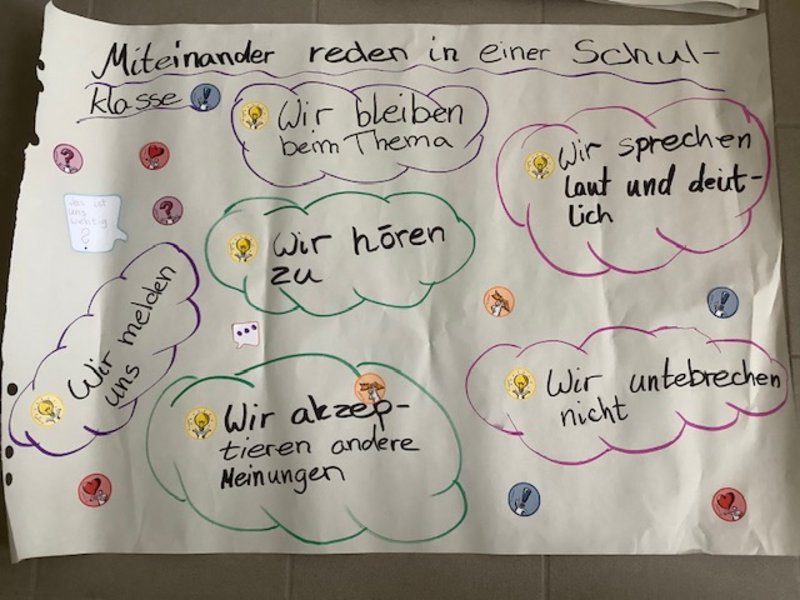 Miteinander reden in einer Schul-
klasse
Wir bleiben
beim Thema
Wir sprechen
laut und deut-
lich
Was ist
uns
wichtig
?
Wir hören
zu
Wir melden
uns
Wir akzep-
tieren andere
Meinungen
Wir untebrechen
nicht